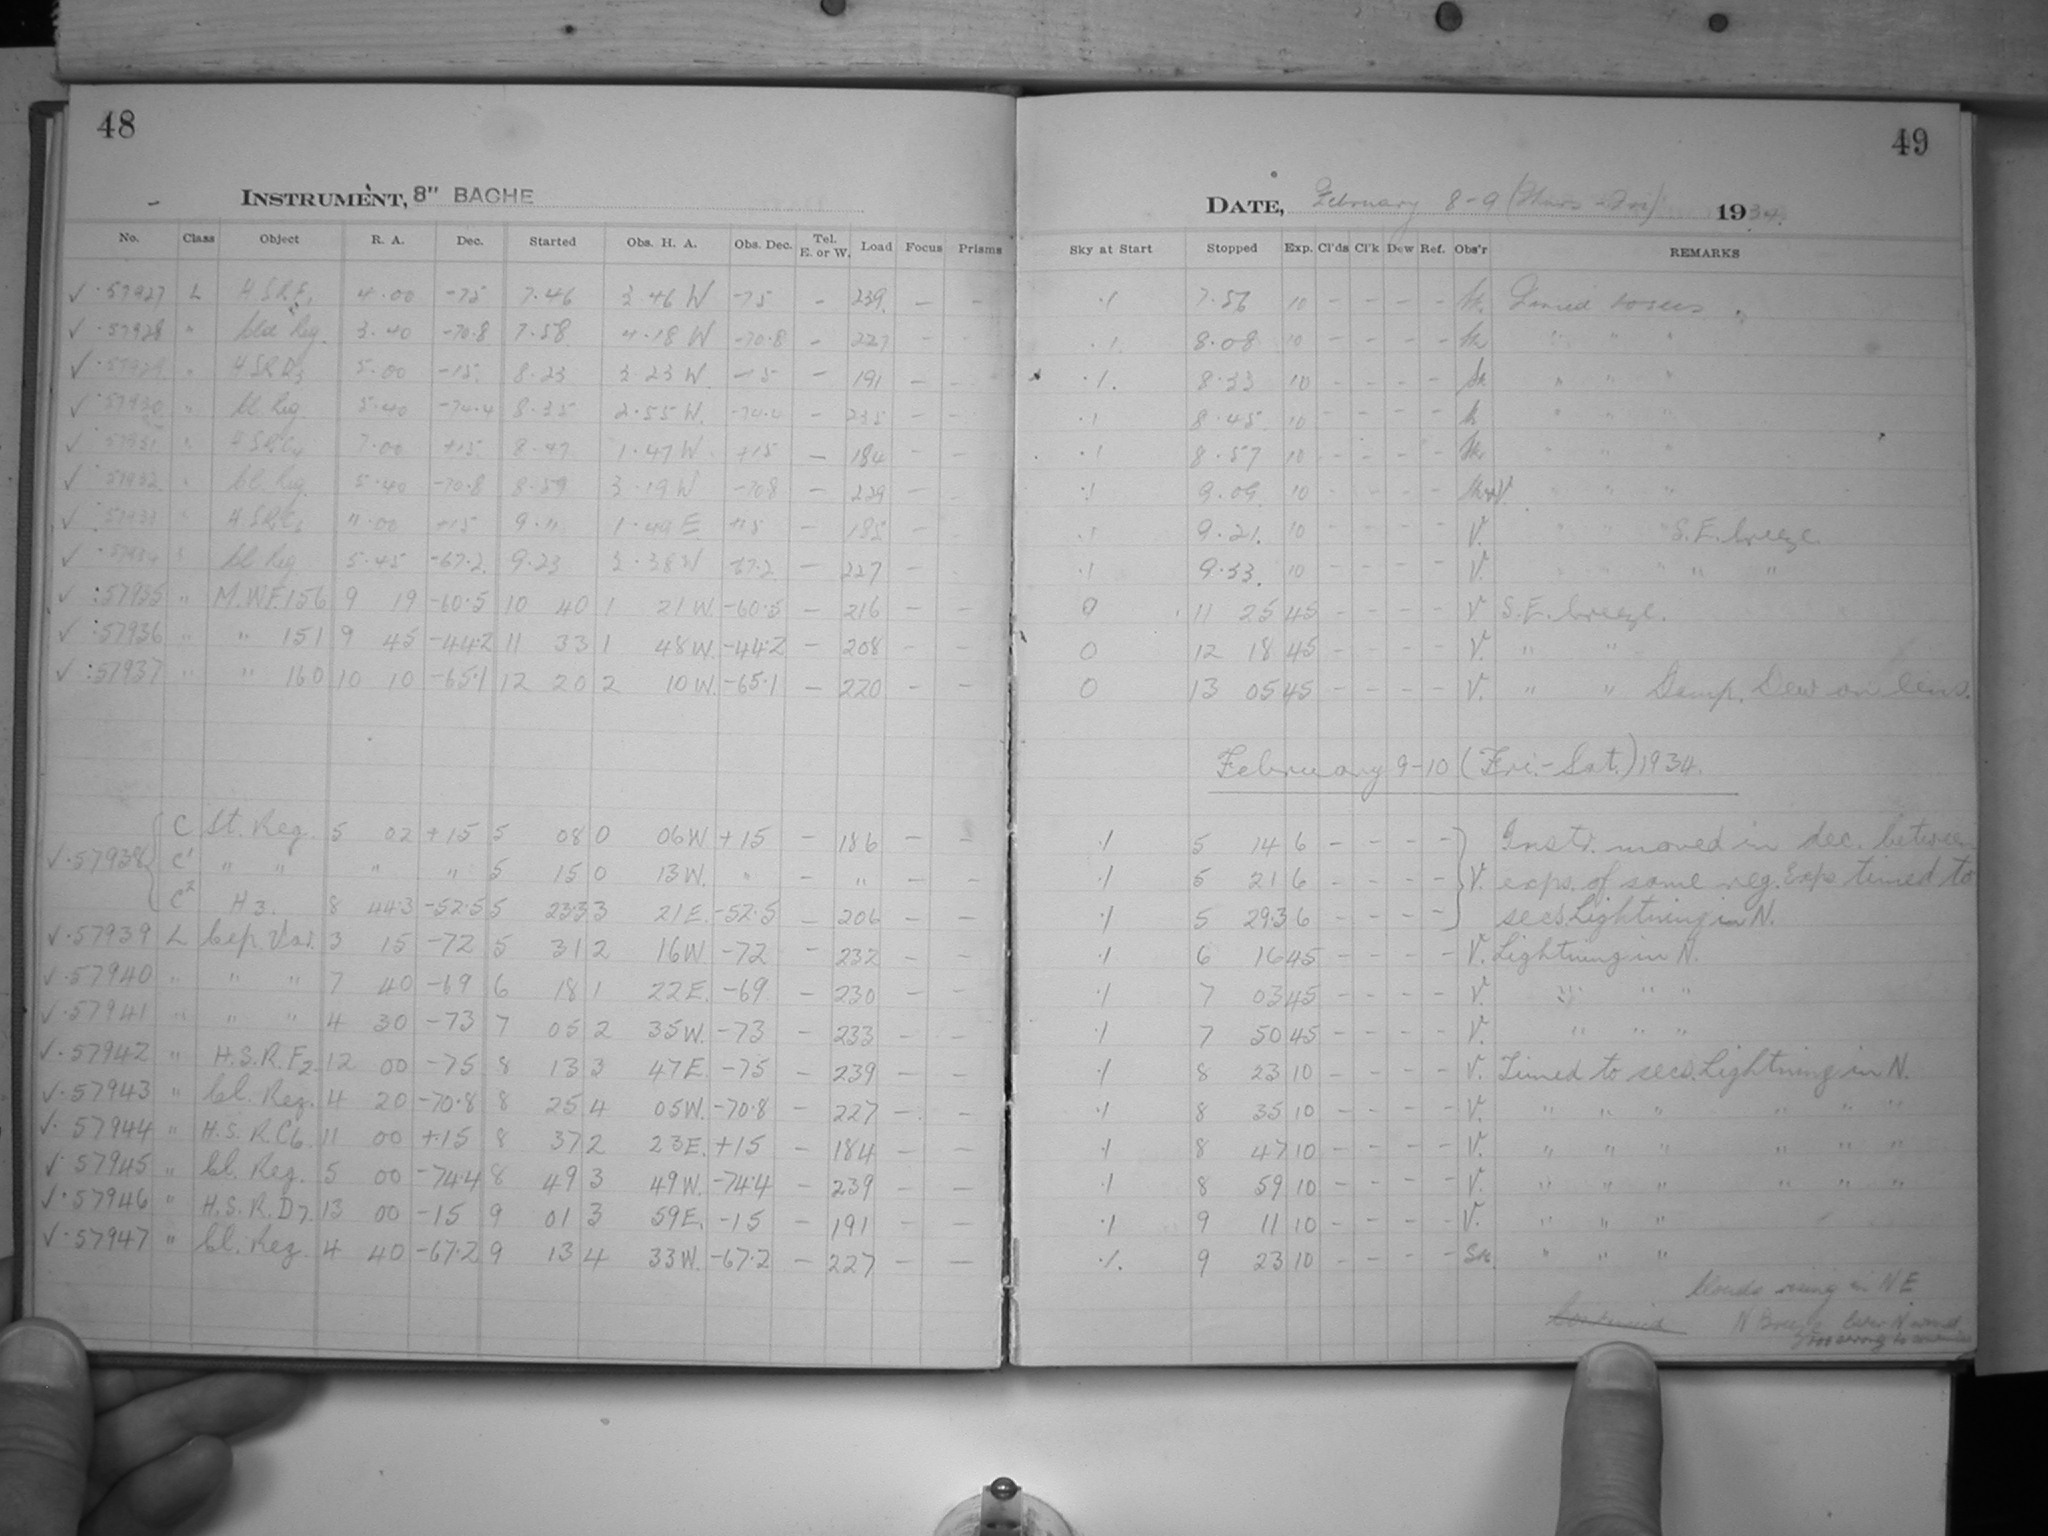 48
INSTRUMENT, 8" BACHE
No. Class Object R. A. Dec. Started Obs. H. A. Obs. Dec. Tel. E. or W. Load Focus Prisms
✓ 57927 L H.S.R.F 4.00 -75 7.46 3 46 W -75 - 239 - -
✓ 57928 " Reg. 3.40 -70.8 7.58 4.18 W -70.8 - 227 - -
✓ 57929 " H S R D3 5.00 -15 8.23 3 23 W -15 - 191 - -
✓ 57930 " Cl. Reg. 5.40 -74.4 8.35 2.55 W. -74.4 - 235 - -
✓ 57931 " H S R C4 7.00 +15 8.47 1.47 W +15 - 184 - -
✓ 57932 " Cl. Reg. 5.40 -70.8 8.59 3 19 W -70.8 - 229 - -
✓ 57933 " H S R C6 11.00 +15 9.11 1.49 E +15 - 185 - -
✓ 57934 " Cl Reg 5.45 -67.2 9.23 3.38 W -67.2 - 227 - -
✓ 57935 " M.W.F. 156 9 19 -60.5 10 40 1 21 W. -60.5 - 216 - -
✓ 57936 " " 151 9 45 -44.2 11 33 1 48 W. -44.2 - 208 - -
✓ 57937 " " 160 10 10 -65.1 12 20 2 10 W. -65.1 - 220 - -
C St. Reg. 5 02 +15 5 08 0 06 W +15 - 186 - -
✓ 57938 C' " " " " 5 15 0 13 W. " - " - -
C² H 3. 8 44.3 -52.5 5 23.3 3 21 E. -52.5 - 206 - -
✓ 57939 L Cep. Var. 3 15 -72 5 31 2 16 W -72 - 232 - -
✓ 57940 " " " 7 40 -69 6 18 1 22 E. -69 - 230 - -
✓ 57941 " " " 4 30 -73 7 05 2 35 W. -73 - 233 - -
✓ 57942 " H.S.R.F2 12 00 -75 8 13 3 47 E. -75 - 239 - -
✓ 57943 " Cl. Reg. 4 20 -70.8 8 25 4 05 W. -70.8 - 227 - -
✓ 57944 " H.S.R.C6. 11 00 +15 8 37 2 23 E. +15 - 184 - -
✓ 57945 " Cl. Reg. 5 00 -74.4 8 49 3 49 W. -74.4 - 239 - -
✓ 57946 " H.S.R.D7. 13 00 -15 9 01 3 59 E. -15 - 191 - -
✓ 57947 " Cl. Reg. 4 40 -67.2 9 13 4 33 W. -67.2 - 227 - -
49
DATE, February 8-9 (Thurs - Fri) 1934.
Sky at Start Stopped Exp. Cl'ds Cl'k Dew Ref. Obs'r REMARKS
.1 7.56 10 - - - - Timed to secs
.1 8.08 10 - - - - " " "
.1 8.33 10 - - - - " " "
.1 8.45 10 - - - - " " "
.1 8.57 10 - - - - " " "
.1 9.09 10 - - - - " " "
.1 9.21. 10 - - - - V. " " " S.E. breeze.
.1 9.33. 10 - - - - V. " " " " "
0 11 25 45 - - - - V S.E. breeze.
0 12 18 45 - - - - V. " "
0 13 05 45 - - - - V. " " Damp. Dew on lens.
February 9-10 (Fri.-Sat.) 1934.
.1 5 14 6 - - - - Instr. moved in dec. between
.1 5 21 6 - - - - V. exps. of same reg. Exps timed to
.1 5 29.3 6 - - - - secs. Lightning in N.
.1 6 16 45 - - - - V. Lightning in N.
.1 7 03 45 - - - - V. " " "
.1 7 50 45 - - - - V. " " "
.1 8 23 10 - - - - V. Timed to secs. Lightning in N.
.1 8 35 10 - - - - V. " " " " " "
.1 8 47 10 - - - - V. " " " " " "
.1 8 59 10 - - - - V. " " " " " "
.1 9 11 10 - - - - V. " " "
.1. 9 23 10 - - - - Sm. " " "
Clouds rising in NE
N Breeze